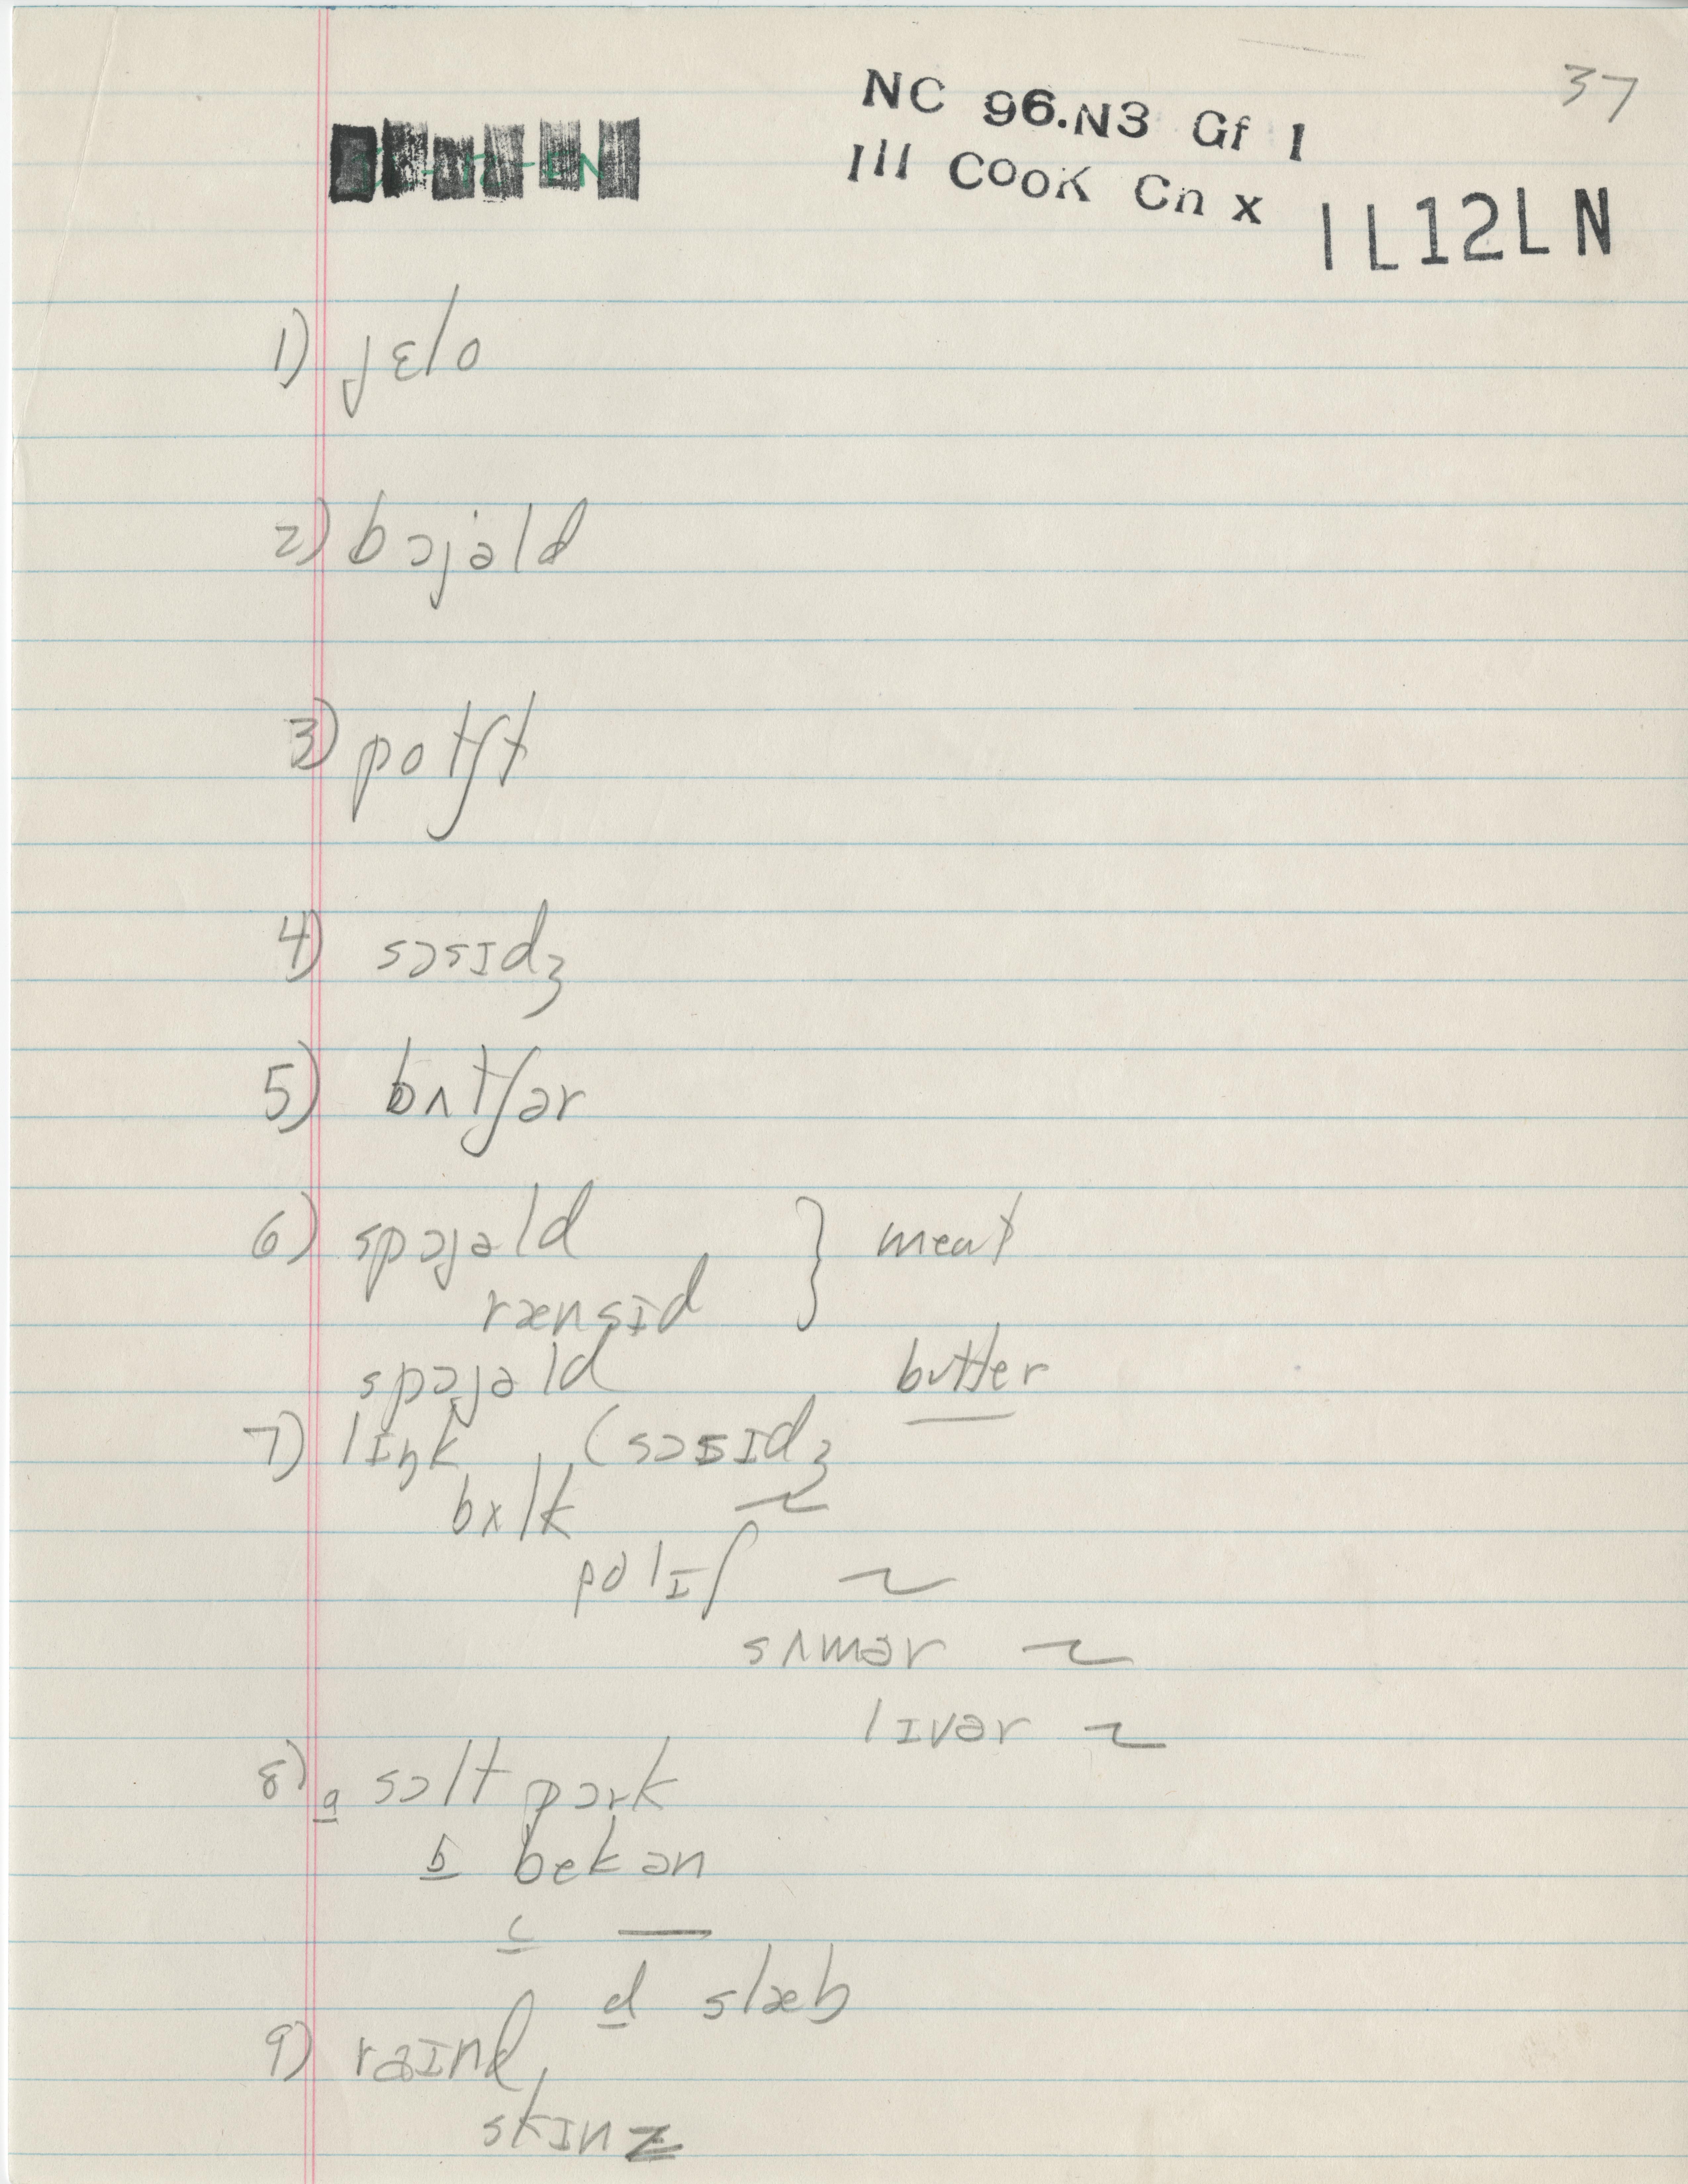 37
NC 96.N3 Gf 1
Ill COOK Cn x
IL12LN
1) jɛlo
2) bɔjəld
3) potʃt
4) sɔsɪdʒ
5) bʌtʃər
6) spɔjəld } meat
rænsɪd
spɔjəld butter
7) lɪŋk, (sɔsɪdʒ
bʌlk ~
polɪʃ ~
sʌmər ~
lɪvər ~
8) a sɔlt pɔrk
b bekən
c —
d slæb
9) raɪnd,
skɪnz